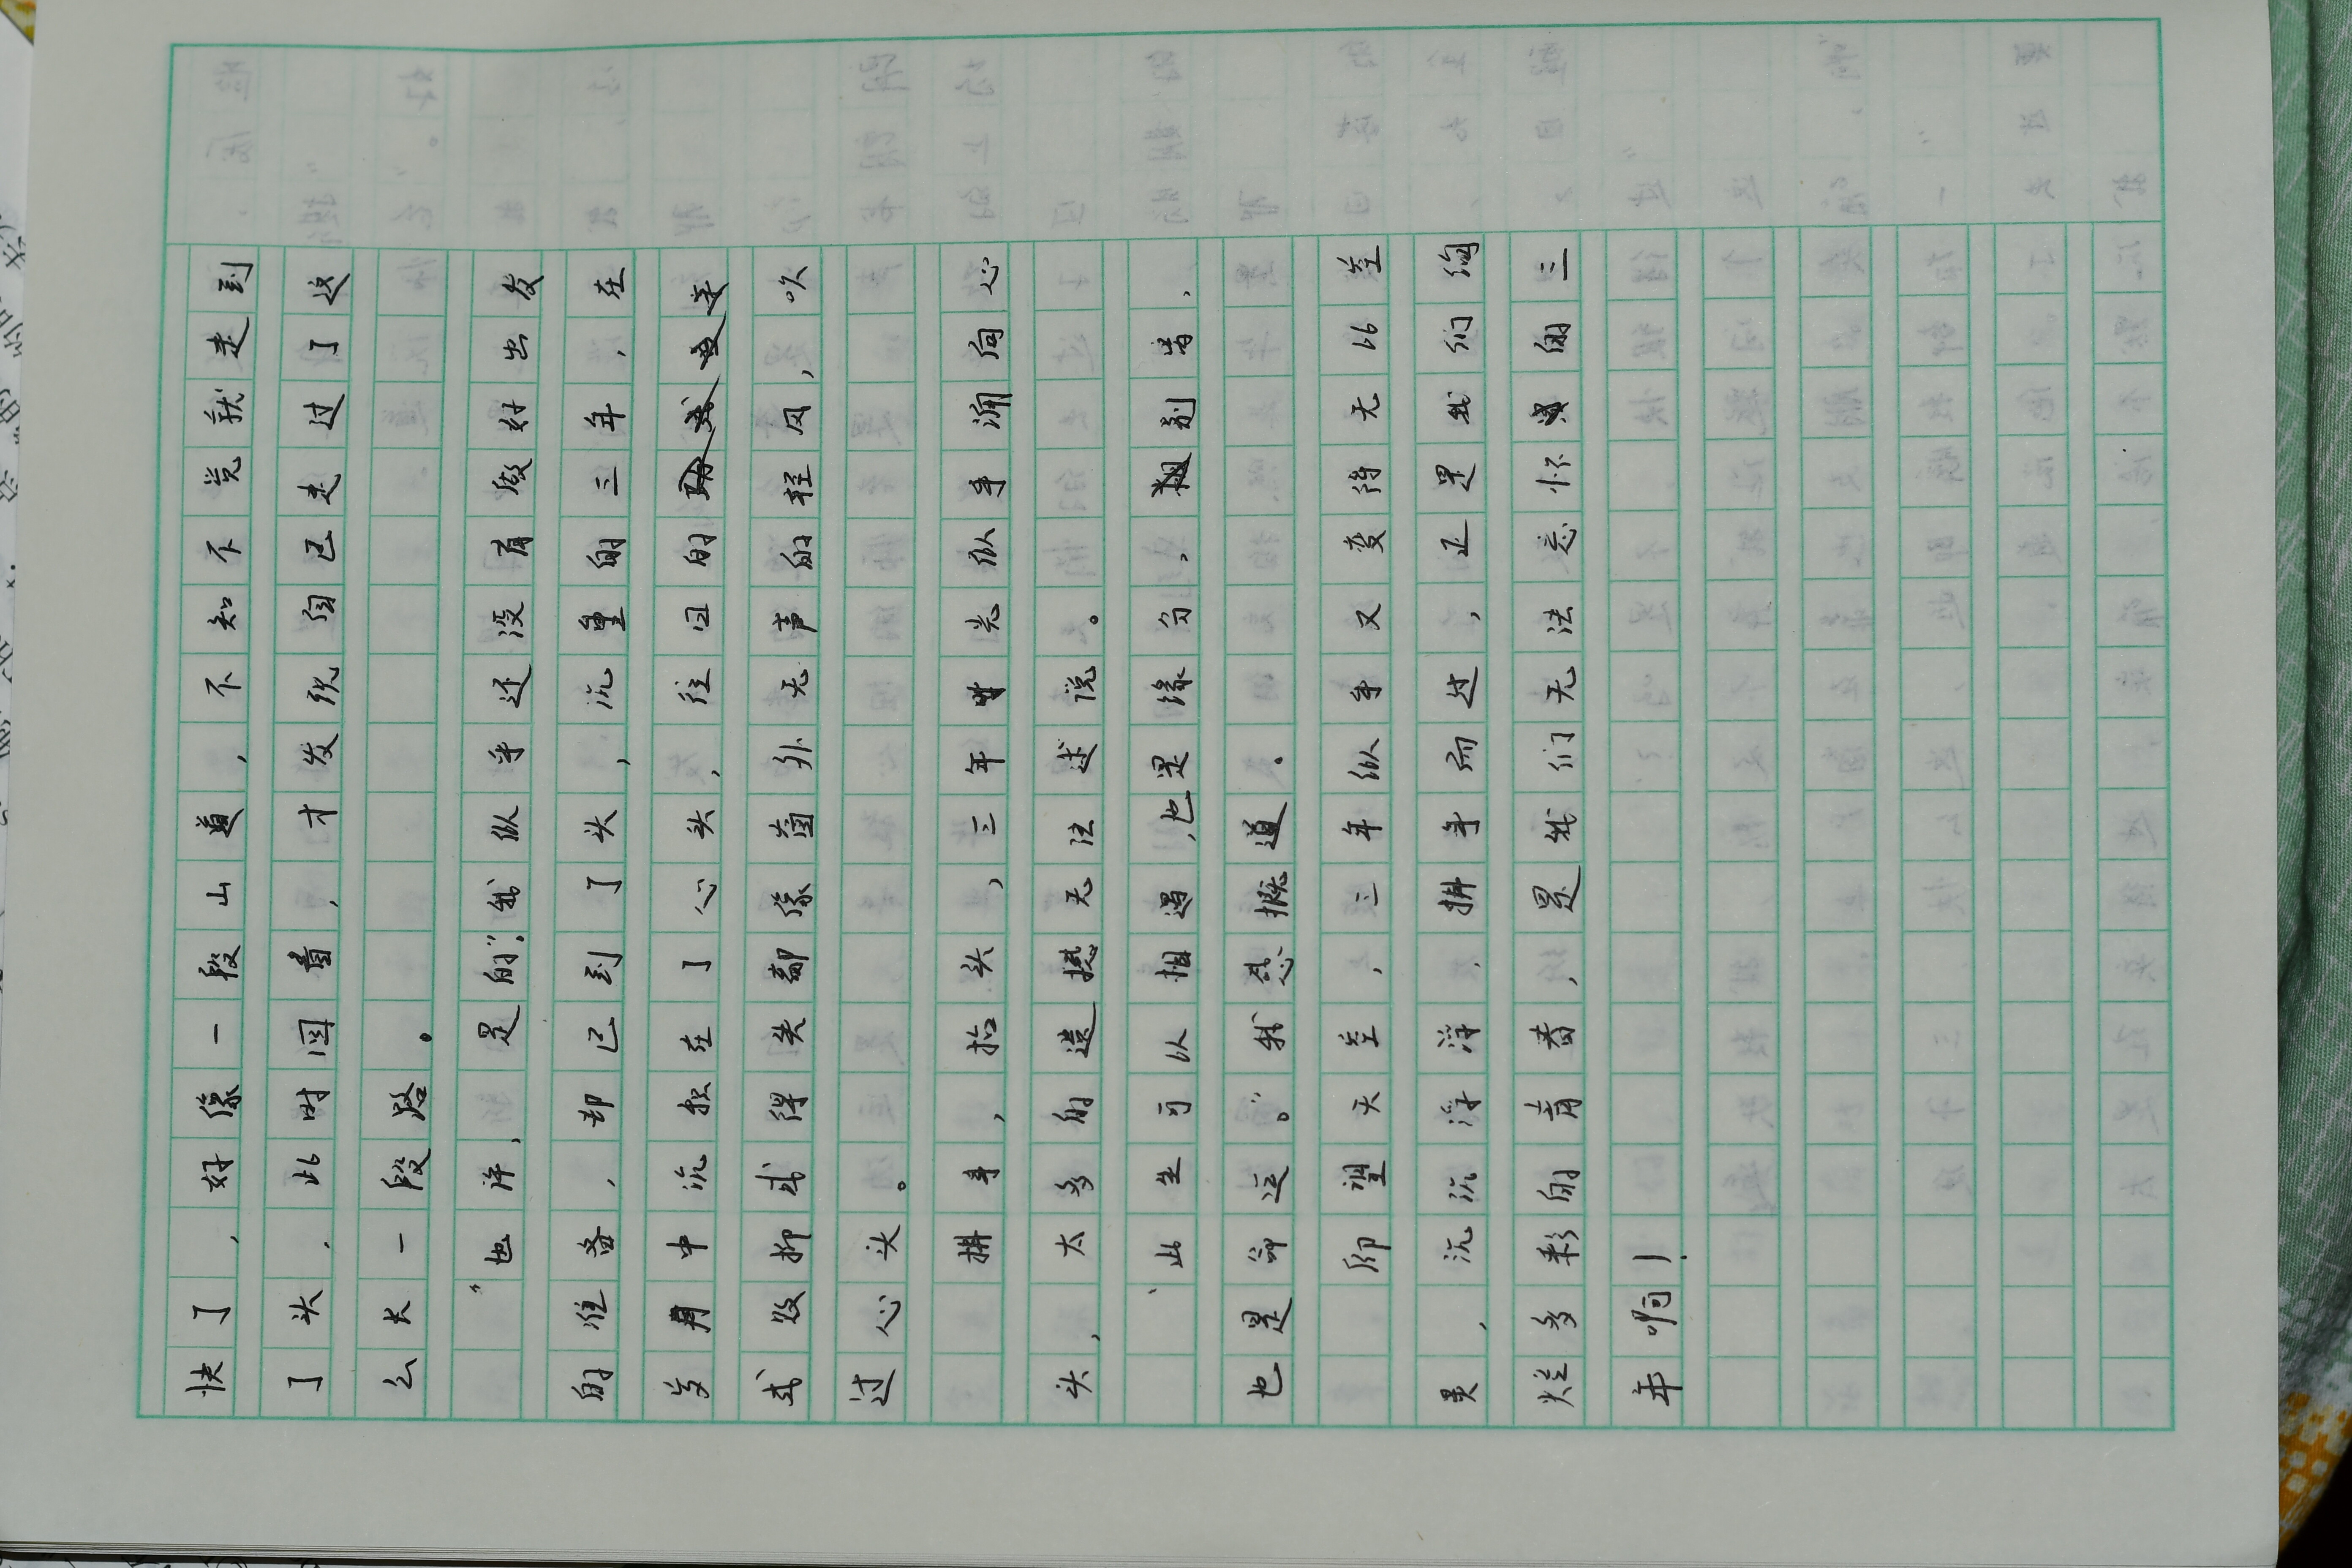 快了，好像一段山道，不知不觉就走到
了头，此时回看，才发现自己走过了这
么长一段路。
“也许，是的”，我似乎还没有做好出发
的准备，却已到了头，沉重的三年，在
岁月中沉积在了心头，往日的
成败抑或得失都像窗外无声的轻风，吹
过心头。
挥手，抬头，三年时光似乎涌向心
头，太多的遗憾无法述说。
“此生可以相遇，也是缘分，别离，
也是命运。”我感慨道。
仰望天空，三年似乎又变得无比空
灵，沉沉浮浮挥手而过，正是我们绚
烂多彩的青春，是我们无法忘怀的三
年啊！